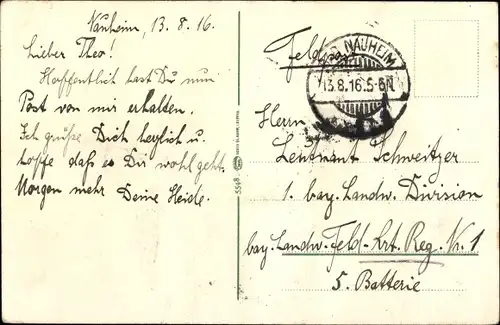 Nauheim, 13. 8. 16.
Lieber Theo!
Hoffentlich hast Du nun
Post von mir erhalten.
Ich grüße Dich herzlich u.
hoffe daß es Dir wohl geht.
Morgen mehr Deine Heide.
5598
Feldpost
BAD NAUHEIM
13.8.16.5-6N.
Herrn
Leutnant Schweitzer
1. bay. Landw. Division
bay. Landw. Feld-Art. Reg. Nr. 1
5. Batterie